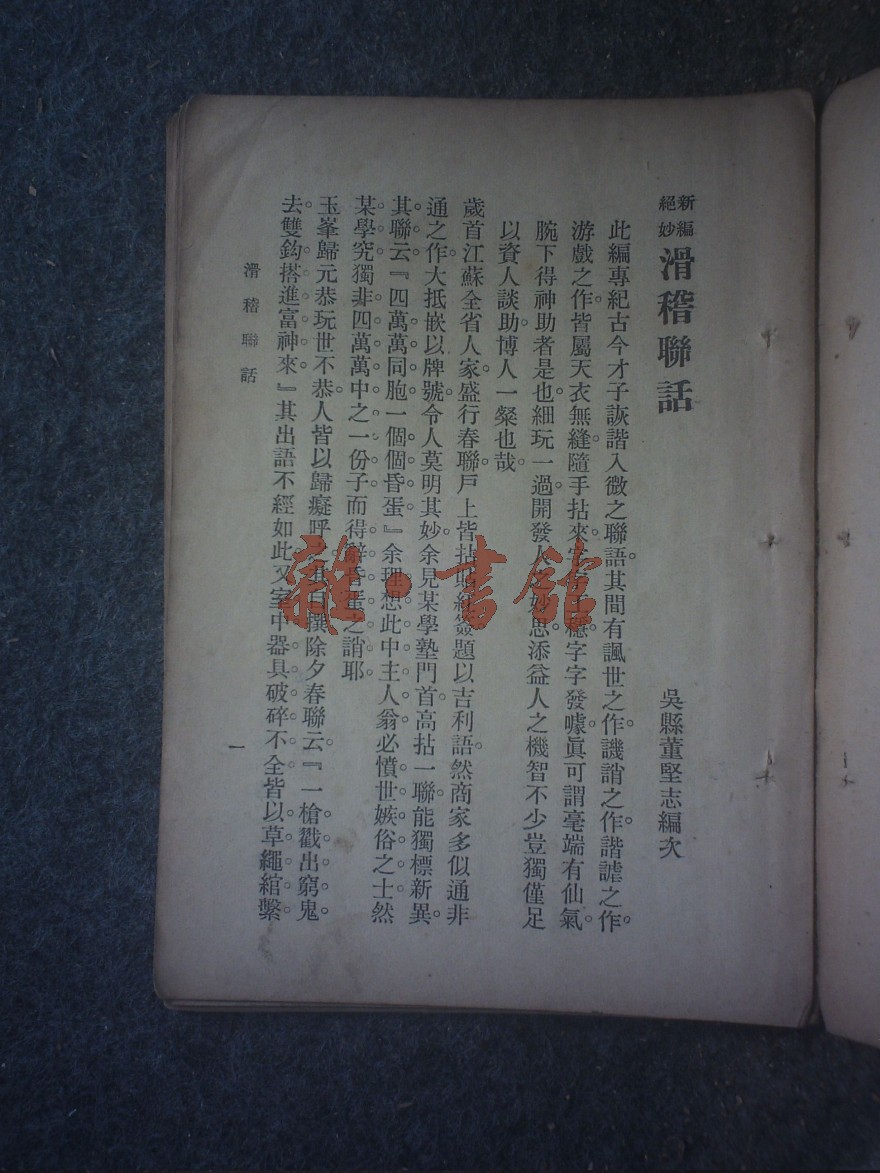 新編
絕妙
滑稽聯話
吳縣董堅志編次
此編專紀古今才子詼諧入微之聯語。其間有諷世之作。譏誚之作。諧謔之作。
游戲之作。皆屬天衣無縫。隨手拈來。字字工穩。字字發噱。眞可謂毫端有仙氣。
腕下得神助者是也。細玩一過。開發人之妙思。添益人之機智不少。豈獨僅足
以資人談助。博人一粲也哉。
歲首江蘇全省人家。盛行春聯。戶上皆拈 紅紙簽題以吉利語。然商家多似通非
通之作。大抵嵌以牌號。令人莫明其妙。余見某學塾門首。高拈一聯。能獨標新異。
其聯云。『四萬萬同胞。一個個昏蛋。』余理想此中主人翁。必憤世嫉俗之士。然
某學究獨非四萬萬中之一份子。而得辭昏蛋之誚耶。
玉峯歸元恭。玩世不恭。人皆以歸癡呼之。 日撰除夕春聯云。『一槍戳出窮鬼
去。雙鈎搭進富神來。』其出語不經如此。又室中器具。破碎不全。皆以草繩綰繫。
滑稽聯話
一
雜·書館